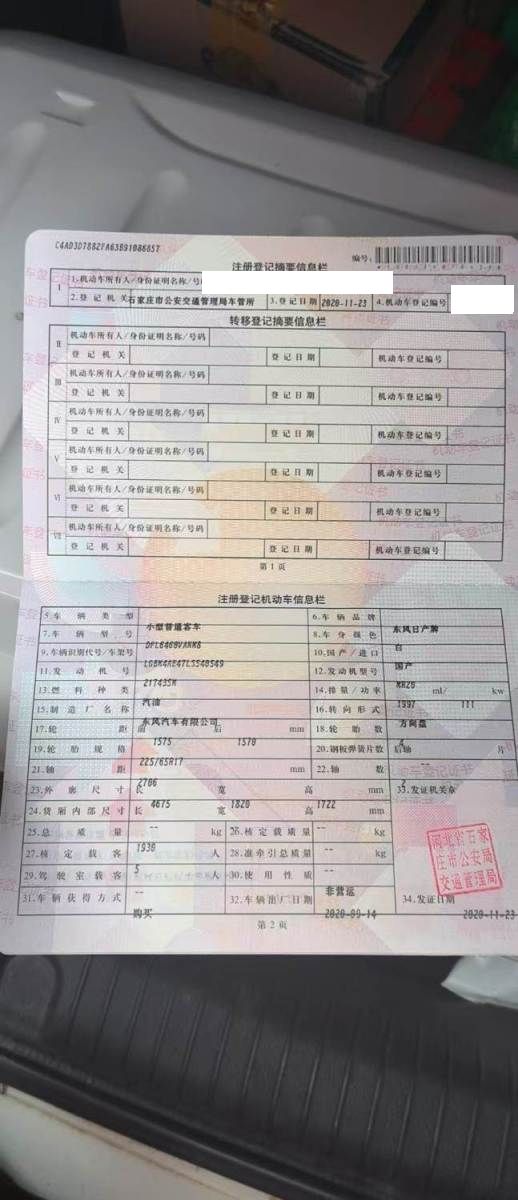 C4AD3D7882FA63B91086857
编号:
注册登记摘要信息栏
I 1.机动车所有人/身份证明名称/号
2.登记机关 石家庄市公安交通管理局车管所 3.登记日期 2020-11-23 4.机动车登记编号
转移登记摘要信息栏
II 机动车所有人/身份证明名称/号码
登记机关 登记日期 机动车登记编号
III 机动车所有人/身份证明名称/号码
登记机关 登记日期 机动车登记编号
IV 机动车所有人/身份证明名称/号码
登记机关 登记日期 机动车登记编号
V 机动车所有人/身份证明名称/号码
登记机关 登记日期 机动车登记编号
VI 机动车所有人/身份证明名称/号码
登记机关 登记日期 机动车登记编号
VII 机动车所有人/身份证明名称/号码
登记机关 登记日期 机动车登记编号
第1页
注册登记机动车信息栏
5.车辆类型 小型普通客车 6.车辆品牌 东风日产牌
7.车辆型号 8.车身颜色 白
9.车辆识别代号/车架号 10.国产/进口 国产
11.发动机号 12.发动机型号 MR20
13.燃料种类 汽油 14.排量/功率 1997 ml/ 111 kw
15.制造厂名称 东风汽车有限公司 16.转向形式 方向盘
17.轮距 前 1575 后 1570 mm 18.轮胎数 4
19.轮胎规格 225/65R17 20.钢板弹簧片数 后轴 -- 片
21.轴距 2706 mm 22.轴数 2
23.外廓尺寸 长 4675 宽 1820 高 1722 mm 33.发证机关章
24.货厢内部尺寸 长 -- 宽 -- 高 -- mm
25.总质量 1930 kg 26.核定载质量 -- kg
27.核定载客 5 人 28.准牵引总质量 -- kg
29.驾驶室载客 -- 人 30.使用性质 非营运
31.车辆获得方式 购买 32.车辆出厂日期 2020-09-14 34.发证日期 2020-11-23
河北省石家
庄市公安局
交通管理局
第2页